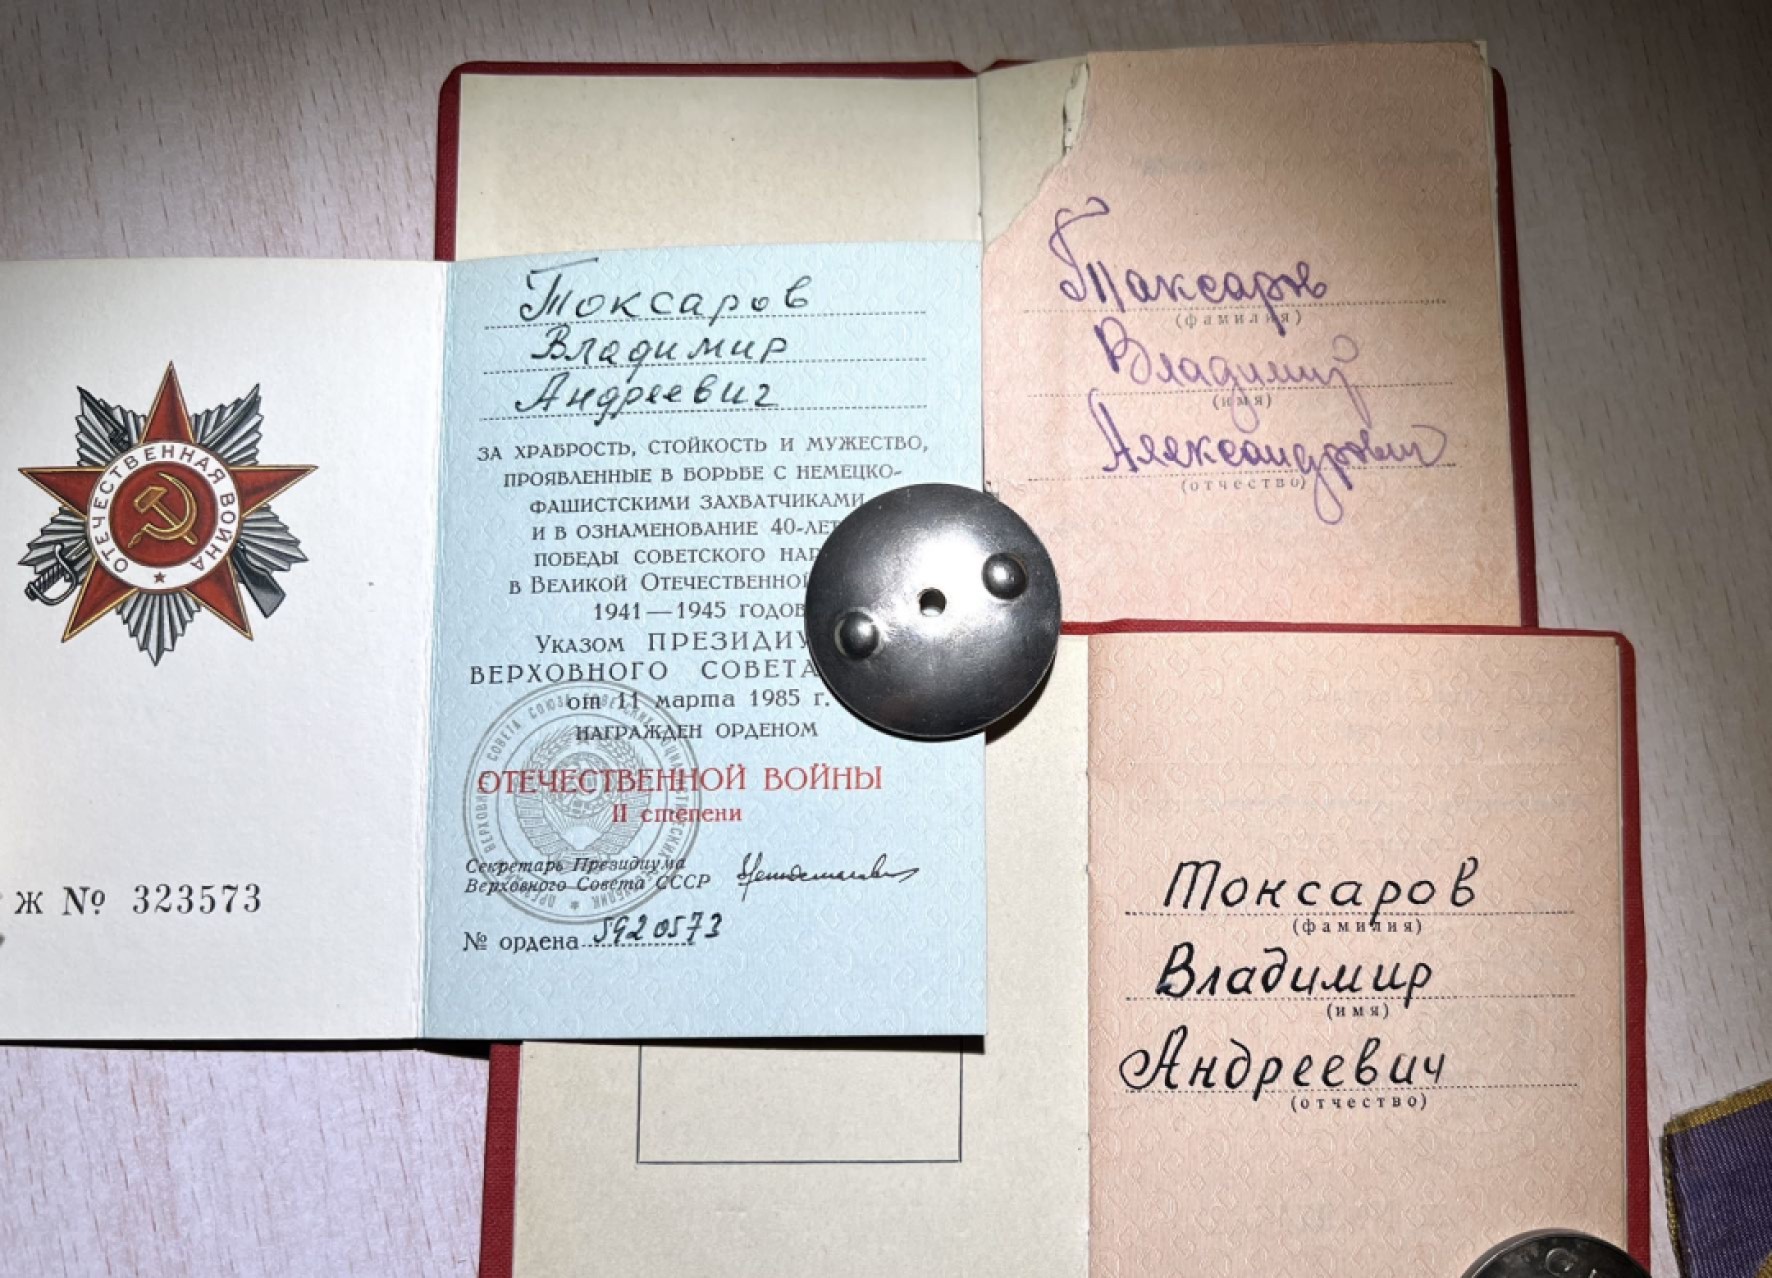 ОТЕЧЕСТВЕННАЯ ВОЙНА
Ж № 323573
Токсаров
Владимир
Андреевич
ЗА ХРАБРОСТЬ, СТОЙКОСТЬ И МУЖЕСТВО,
ПРОЯВЛЕННЫЕ В БОРЬБЕ С НЕМЕЦКО-
ФАШИСТСКИМИ ЗАХВАТЧИКАМИ
И В ОЗНАМЕНОВАНИЕ 40-ЛЕТ
ПОБЕДЫ СОВЕТСКОГО НАР
В ВЕЛИКОЙ ОТЕЧЕСТВЕННОЙ
1941—1945 ГОДОВ
УКАЗОМ ПРЕЗИДИУ
ВЕРХОВНОГО СОВЕТА
от 11 марта 1985 г.
НАГРАЖДЕН ОРДЕНОМ
ОТЕЧЕСТВЕННОЙ ВОЙНЫ
II степени
Секретарь Президиума
Верховного Совета СССР
№ ордена 5920573
Таксаров
(фамилия)
Владимир
(имя)
Александрович
(отчество)
Токсаров
(фамилия)
Владимир
(имя)
Андреевич
(отчество)